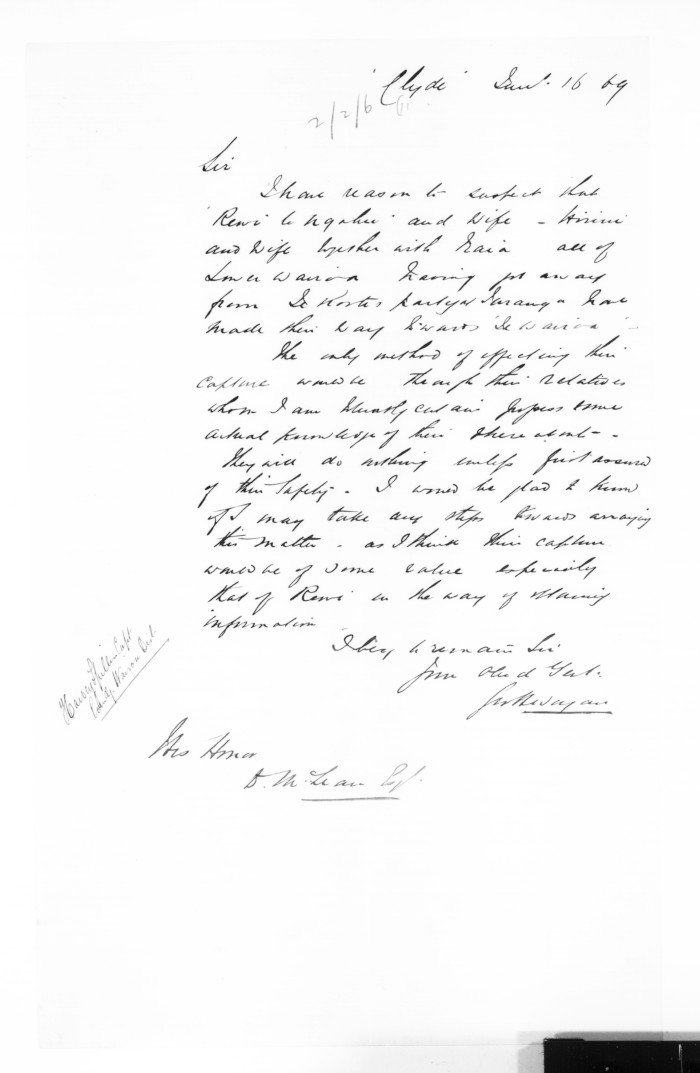 "Clyde" Jany. 16 69
2/2/6
Sir
I have reason to suspect that
'Rewi te Ngahu' and Wife - Hirini
and Wife together with Maia all of
Lower Wairoa having got away
from Te Kooti's party at Turanga have
made their way towards 'Te Wairoa' -
The only method of effecting their
capture would be through their relatives
whom I am certain possess some
actual knowledge of their whereabouts -
They will do nothing unless first assured
of their Safety - I would be glad to know
if I may take any steps towards arranging
this matter - as I think their capture
would be of some value especially
that of Rewi in the way of obtaining
information
I beg to remain Sir
Your Obed Servt.
His Honor
D. McLean Esq.
Capt
Wairoa Dist.